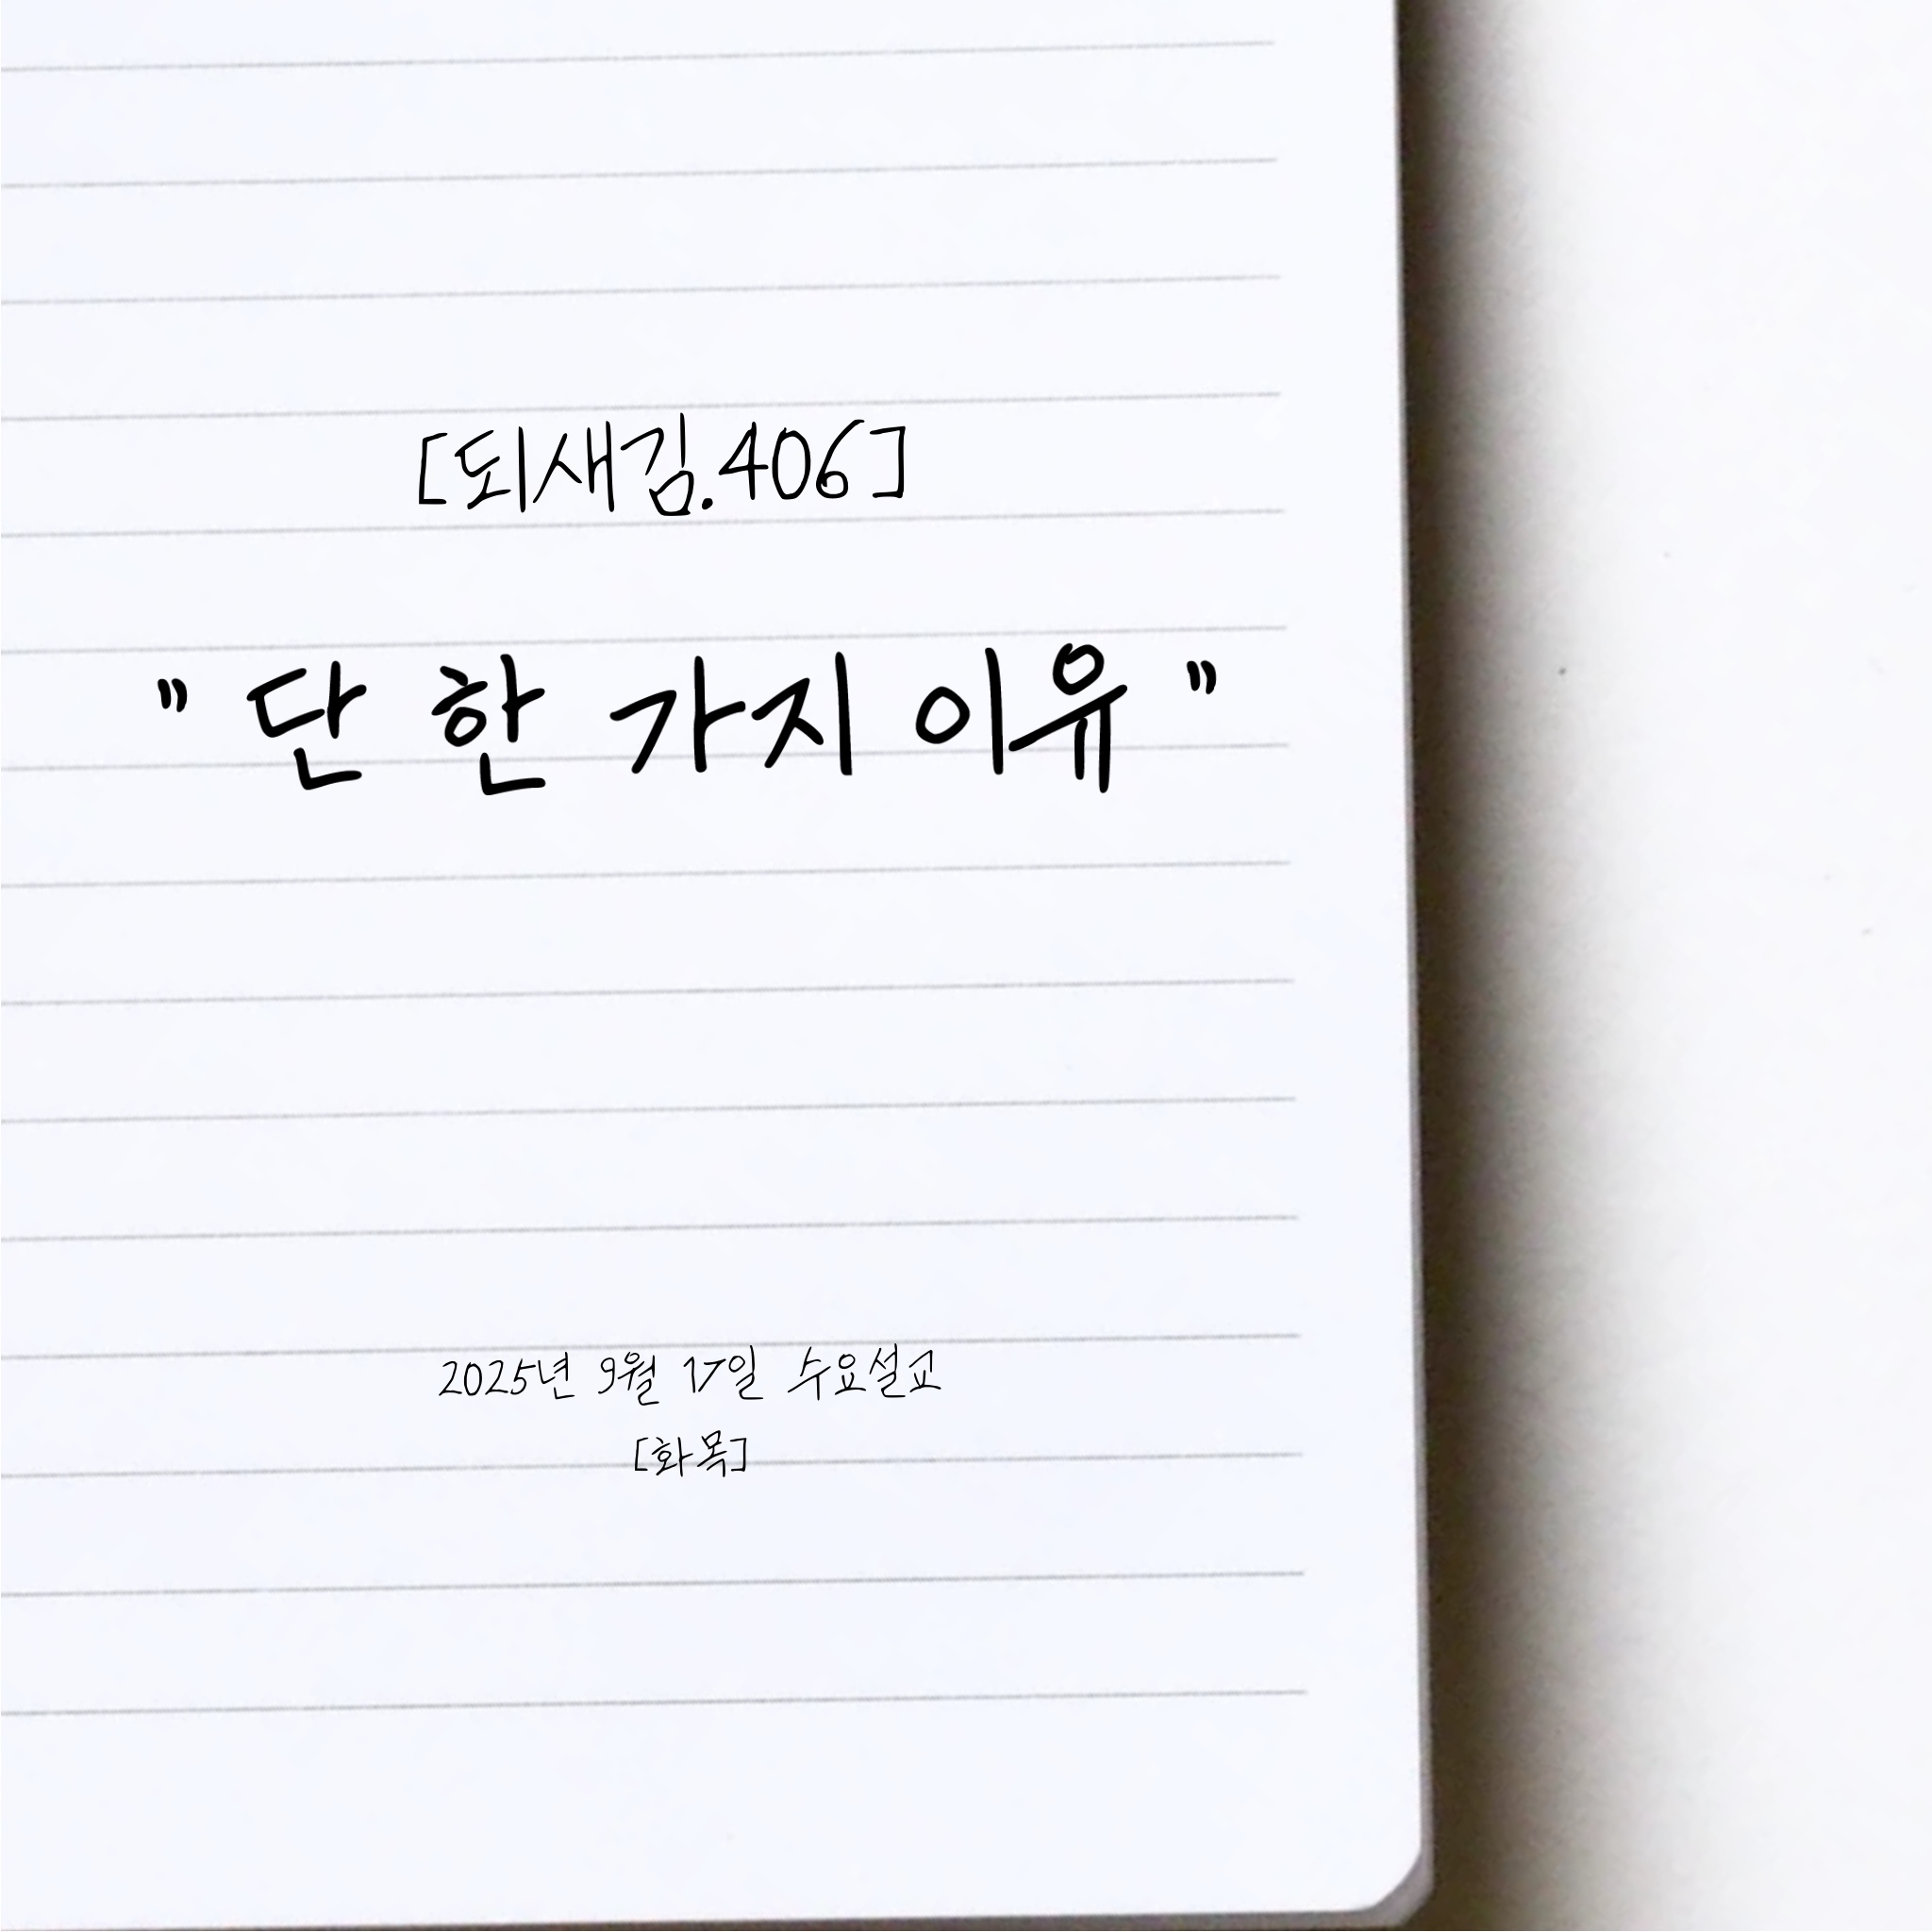 [되새김.406]
" 단 한 가지 이유 "
2025년 9월 17일 수요설교
[화목]